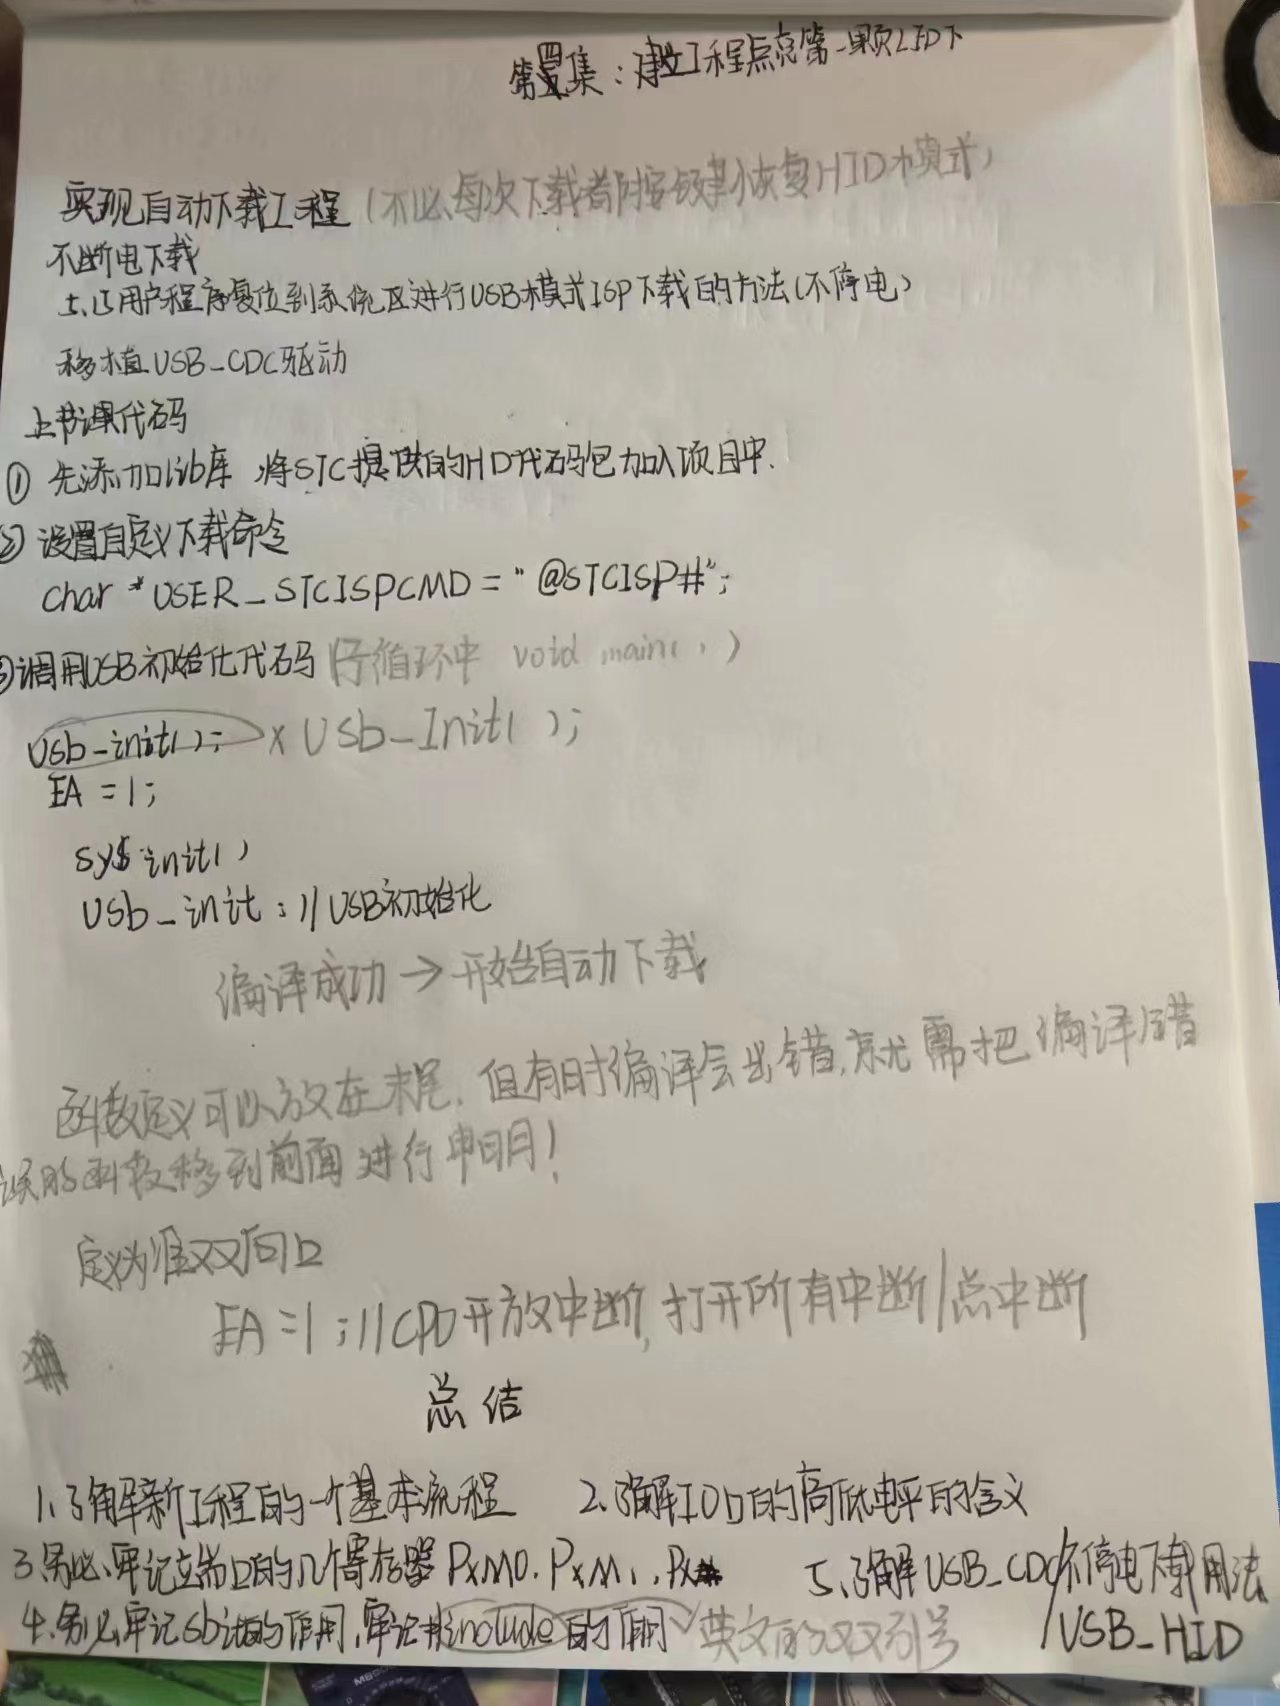 第四集：建立工程点亮第一颗LED下
实现自动下载工程（不必每次下载都按按键恢复HID模式）
不断电下载
5.15用户程序复位到系统区进行USB模式ISP下载的方法(不停电)
移植USB_CDC驱动
上节课代码
① 先添加lib库 将STC提供的HID代码包加入项目中.
② 设置自定义下载命令
char *USER_STCISPCMD = "@STCISP#";
③调用USB初始化代码 循环中 void main( )
Usb_init(); × Usb_Init( );
EA = 1;
sys init()
Usb_init; //USB初始化
编译成功 → 开始自动下载
函数定义可以放在末尾, 但有时编译会出错,就需把编译错
误的函数移到前面进行申明!
定义为准双向口
EA =1 ; //CPU开放中断,打开所有中断/总中断
总结
1.了解新工程的一个基本流程 2.了解IO口的高低电平的含义
3.务必牢记端口的几个寄存器 PxM0, PxM1, Px 5.了解USB_CDC不停电下载用法
4.务必牢记sbit的作用,牢记#include的作用 英文的双引号 /USB_HID
M850